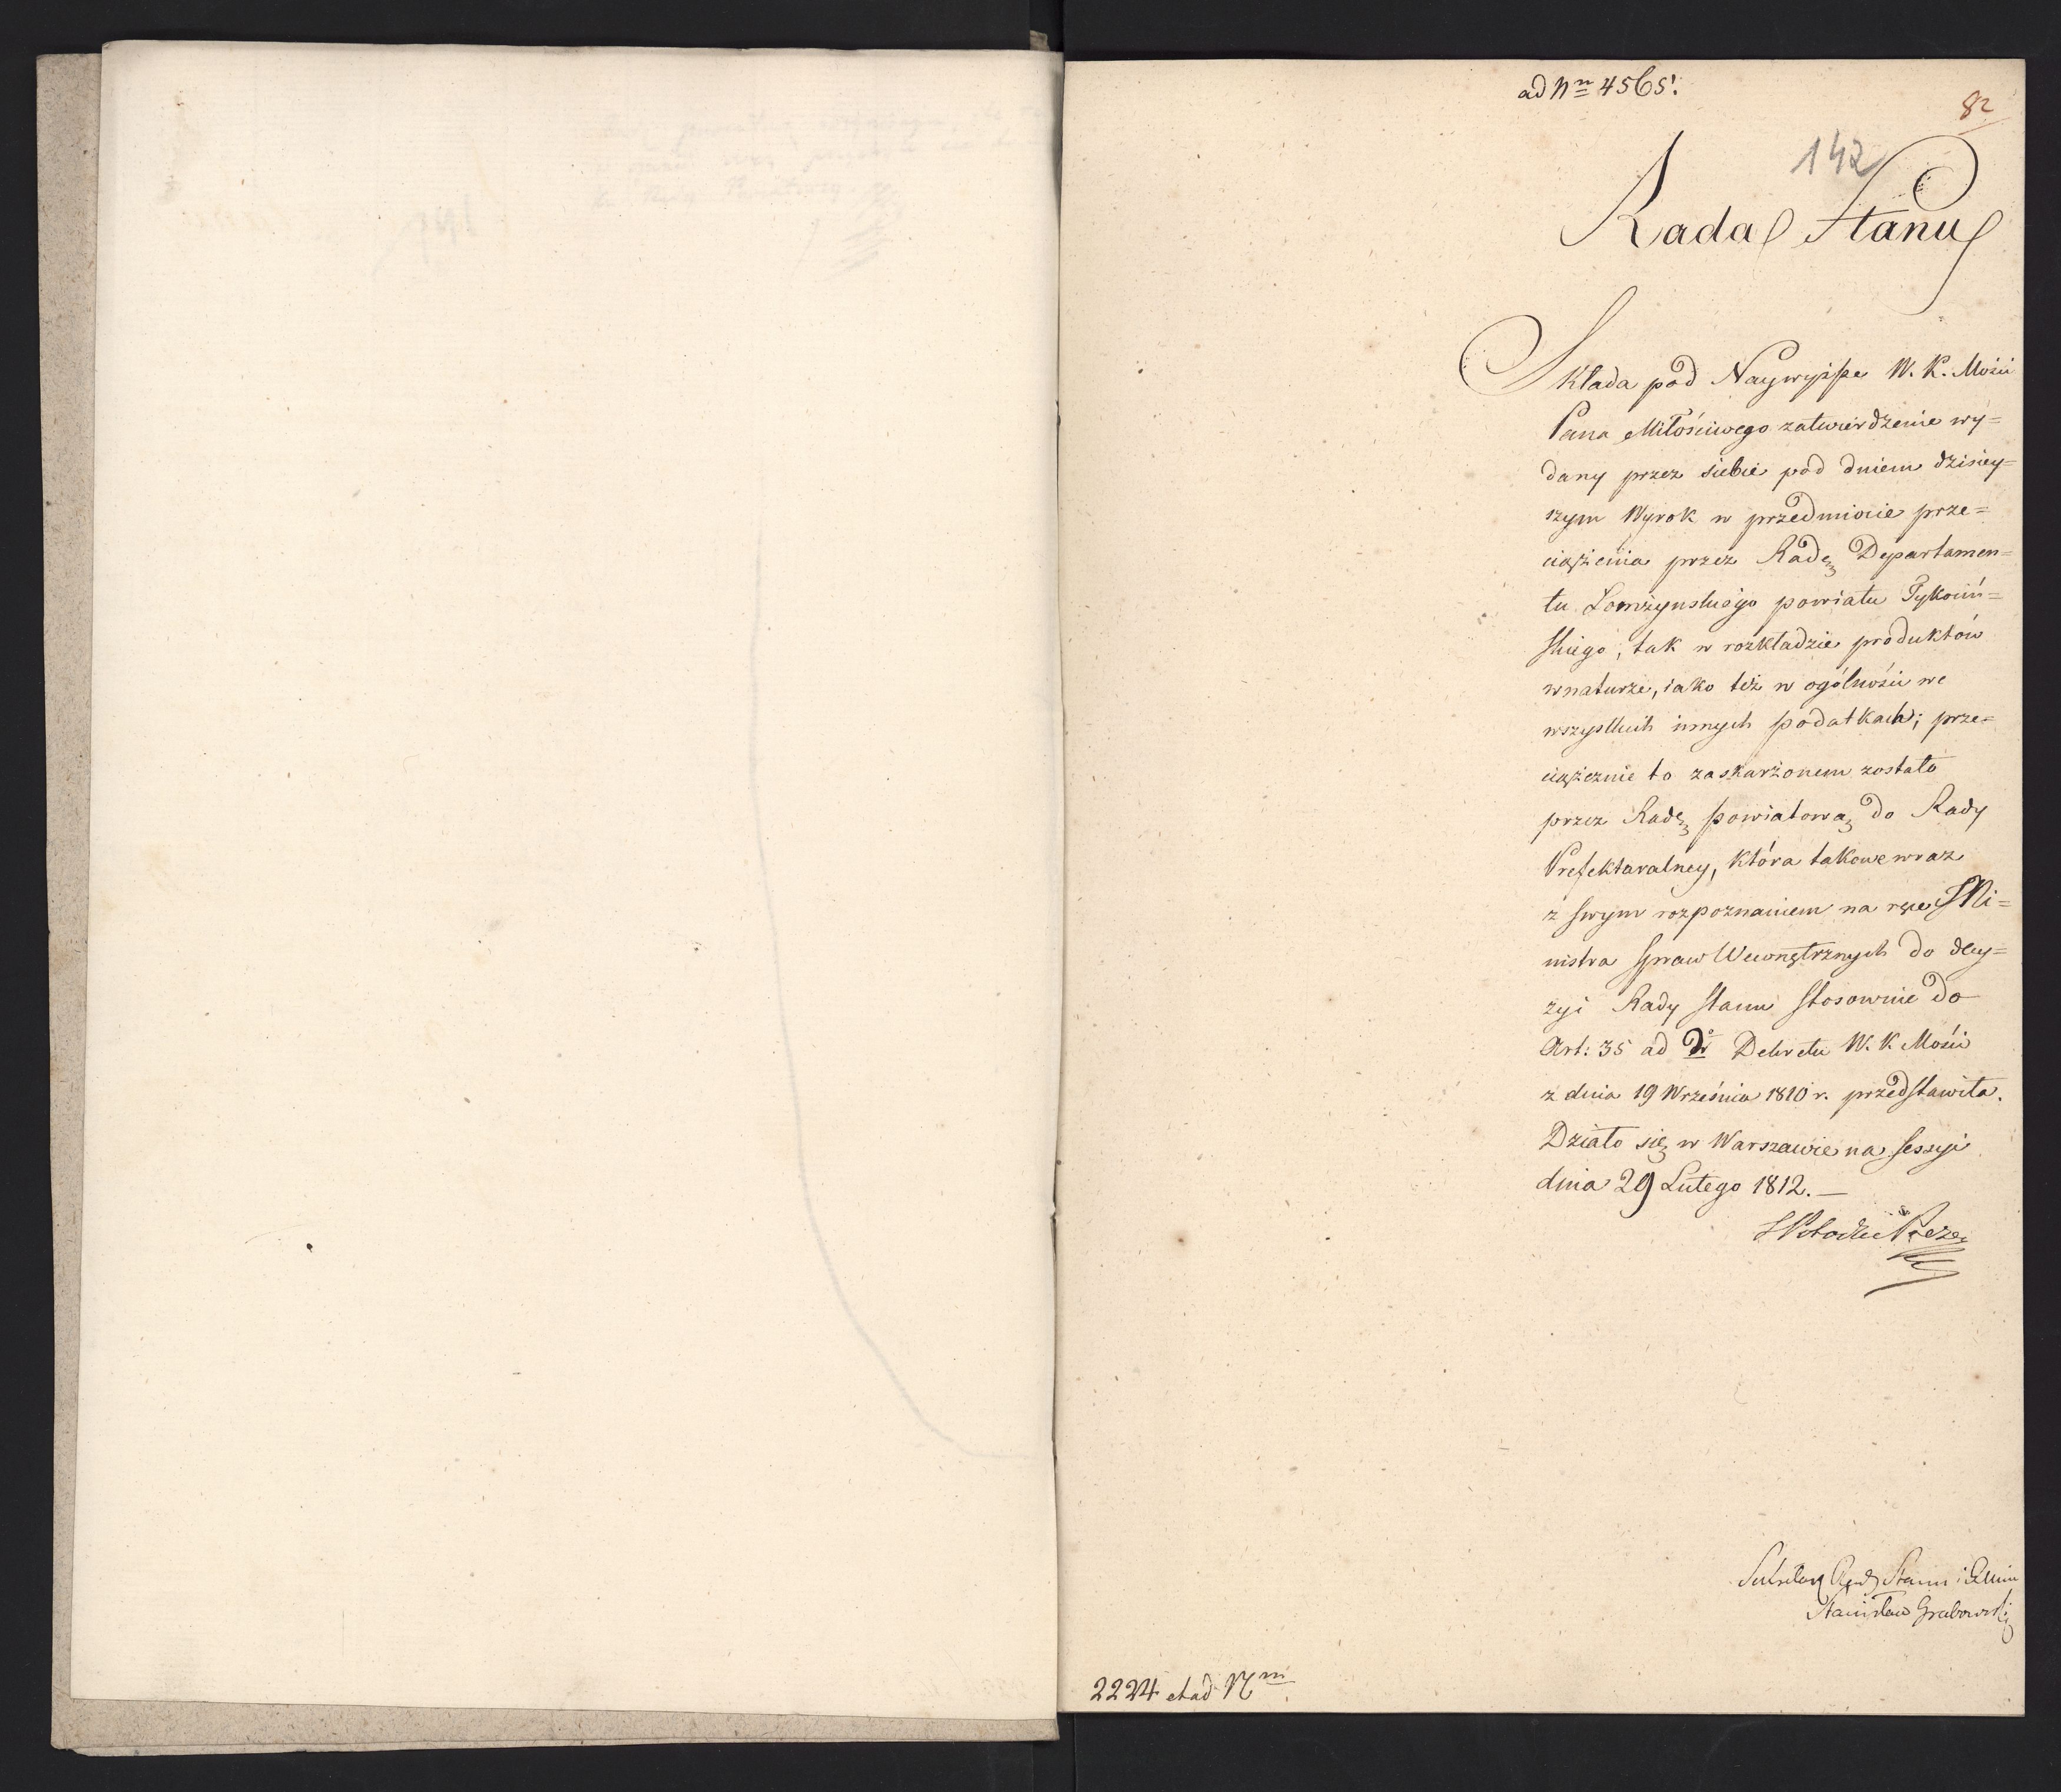 ad Nrm 4565.
82
142
Rada Stanu
Składa pod Naywyższe W. K. Mości
Pana Miłościwego zatwierdzenie wy=
dany przez siebie pod dniem dzisiey=
szym Wyrok w przedmiocie prze=
ciążenia przez Radę Departamen=
tu Łomżynskiego powiatu Tykociń=
skiego, tak w rozkładzie produktów
w naturze, iako też w ogólności we
wszystkich innych podatkach; prze=
ciążenie to zaskarżonem zostało
przez Radę powiatową do Rady
Prefekturalney, która takowe wraz
z swym rozpoznaniem na ręce Mi=
nistra Spraw Wewnętrznych do decy=
zyi Rady Stanu stosownie do
Art: 35 ad Dekretu W. K. Mości
z dnia 19 Września 1810 r. przedstawiła.
Działo się w Warszawie na sessyi
dnia 29 Lutego 1812. —
Potocki Prezes
Sekretarz Rady Stanu i
Stanisław Grabowski
2224 et ad Nm